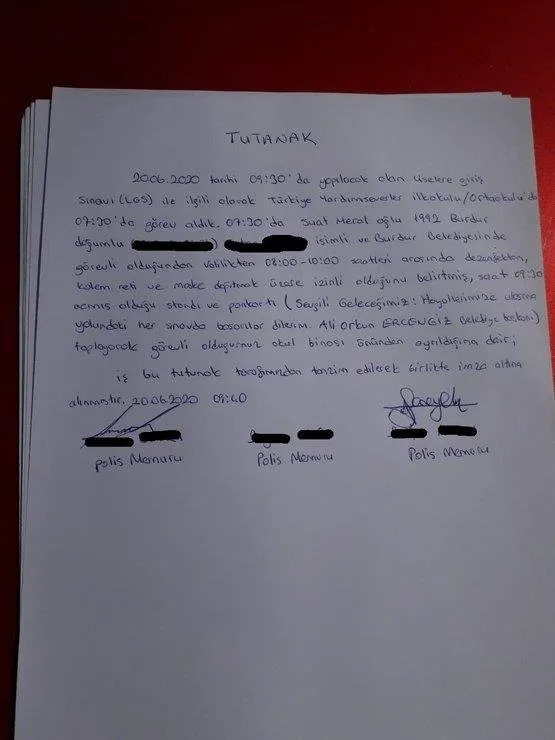 TUTANAK
20.06.2020 tarihi 09:30'da yapılacak olan Liselere giriş
Sınavı (LGS) ile ilgili olarak Türkiye Yardımsevenler ilkokulu/Ortaokulu'da
07:30'da görev aldık. 07:30'da Suat Meral oğlu 1992 Burdur
doğumlu ( ) isimli ve Burdur Belediyesinde
görevli olduğundan Valilikten 08:00-10:00 saatleri arasında dezenfektan,
kalem seti ve maske dağıtmak üzere izinli olduğunu belirtmiş, saat 09:30
açmış olduğu standı ve pankartı (Sevgili Geleceğimiz: Hayallerinize ulaşma
yolundaki her sınavda başarılar dilerim. Ali Orkun ERCENGİZ Belediye başkanı)
toplayarak görevli olduğumuz okul binası önünden ayrıldığına dair;
iş bu tutanak tarafımızdan tanzim edilerek birlikte imza altına
alınmıştır. 20.06.2020 09:40
Polis Memuru Polis Memuru Polis Memuru